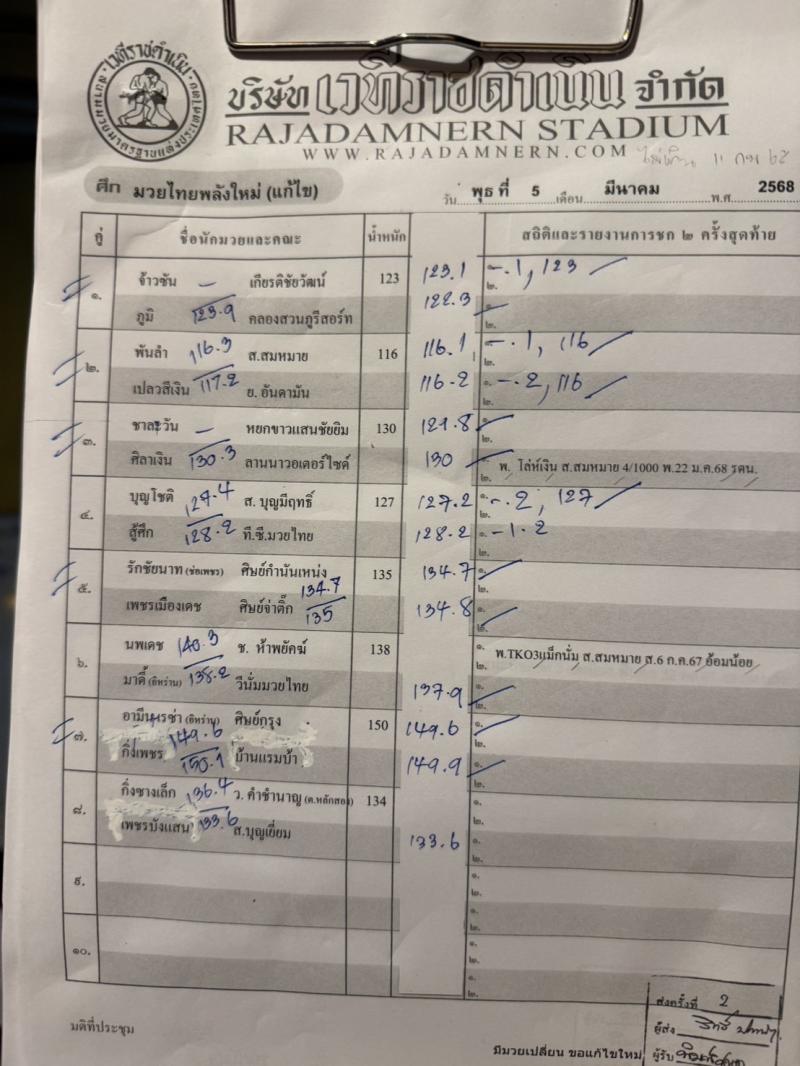 เวทีราชดำเนิน
บริษัท เวทีราชดำเนิน จำกัด
RAJADAMNERN STADIUM
WWW.RAJADAMNERN.COM
ศึก มวยไทยพลังใหม่ (แก้ไข) วัน พุธ ที่ 5 เดือน มีนาคม พ.ศ 2568
คู่ ชื่อนักมวยและคณะ น้ำหนัก สถิติและรายงานการชก ๒ ครั้งสุดท้าย
๑. จ้าวซัน – เกียรติชัยวัฒน์ 123 123.1 ๑. –.1, 123 ๒.
ภูมิ 123.9 คลองสวนภูรีสอร์ท 122.3 ๑. ๒.
๒. พันลำ 116.3 ส.สมหมาย 116 116.1 ๑. –.1, 116 ๒.
เปลวสีเงิน 117.2 ย. อันดามัน 116.2 ๑. –.2, 116 ๒.
๓. ชาละวัน – หยกขาวแสนชัยยิม 130 129.8 ๑. ๒.
ศิลาเงิน 130.3 ลานนาวอเตอร์ไซด์ 130 ๑. ๒. พ. โล่ห์เงิน ส.สมหมาย 4/1000 พ.22 ม.ค.68 รดน.
๔. บุญโชติ 127.4 ส. บุญมีฤทธิ์ 127 127.2 ๑. –.2, 127 ๒.
สู้ศึก 128.2 ที.ซี.มวยไทย 128.2 ๑. –1.2 ๒.
๕. รักชัยนาท (ช่อเพชร) ศิษย์กำนันเหน่ง 135 134.7 ๑. ๒.
134.7
เพชรเมืองเดช ศิษย์จ่าติ๊ก 135 134.8 ๑. ๒.
๖. นพเดช 140.3 ช. ห้าพยัคฆ์ 138 ๑. ๒. พ.TKO3แม็กนั่ม ส.สมหมาย ส.6 ก.ค.67 อ้อมน้อย
มาดี้ (อิหร่าน) 138.2 วีนั่มมวยไทย 137.9 ๑. ๒.
๗. อามีนเรซ่า (อิหร่าน) 149.6 ศิษย์กรุง 150 149.6 ๑. ๒.
กิ่งเพชร 150.1 บ้านแรมบ้า 149.9 ๑. ๒.
๘. กิ่งซางเล็ก 136.4 ว. คำชำนาญ (ต.หลักสอง) 134 ๑. ๒.
เพชรบังแสน 133.6 ส.บุญเยี่ยม 133.6 ๑. ๒.
๙. ๑. ๒.
๑. ๒.
๑๐. ๑. ๒.
๑. ๒.
ส่งครั้งที่ 2
มติที่ประชุม ผู้ส่ง
มีมวยเปลี่ยน ขอแก้ไขใหม่ ผู้รับ